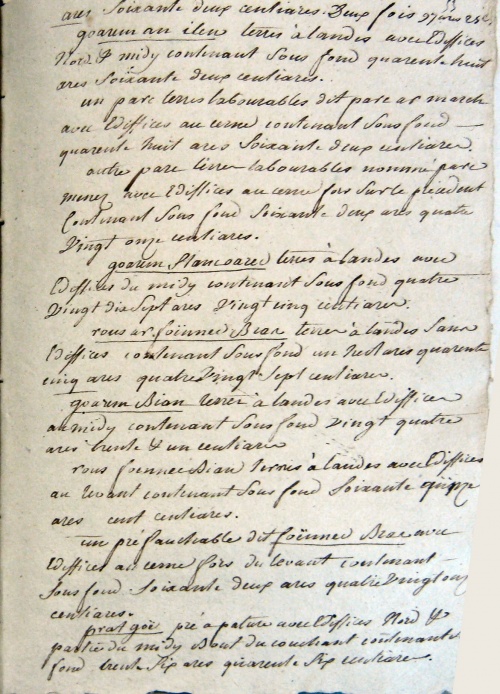 ares Soixante deux centiares. Deux fois 97 ares 25 c
goarem an ilen terres à landes avec Ediffices
Nord & midy contenant Sous fond quarente huit
ares Soixante deux centiares.
un parc terres labourables dit parc ar march
avec Ediffices au cerne contenant Sous fond
quarente huit ares Soixante deux centiares.
autre parc terres labourables nommé parc
menez avec Ediffices au cerne fors Sur le précédent
Contenant Sous fond Soixante deux ares quatre
Vingt onze centiares.
goarem Stancoarec terres à landes avec
Ediffices du midy contenant Sous fond quatre
Vingt dix Sept ares Vingt cinq centiares.
rous ar foënnec Bian terres à landes Sans
Ediffices contenant Sous fond un hectares quarente
cinq ares quatre Vingt Sept centiares.
goarem Bian terres à landes avec Ediffices
au midy contenant Sous fond Vingt quatre
ares trente & un centiares
rous foennec Bian terres à landes avec Ediffices
au levant contenant Sous fond Soixante quinze
ares cent centiares.
un pré fauchable dit foënnec Bras avec
Ediffices au cerne fors du levant contenant
Sous fond Soixante deux ares quatre Vingt onze
centiares.
prat goë pré à pature avec Ediffices Nord &
partie du midy Bout du couchant contenant S.
fond trente Six ares quarente Six centiares.